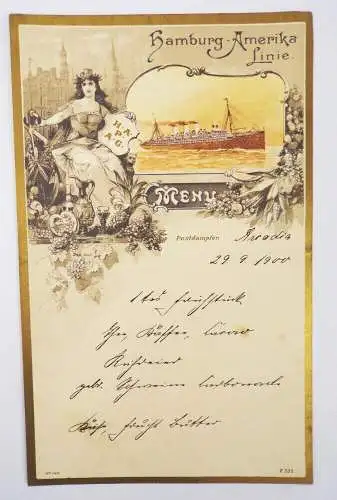 Hamburg-Amerika
Linie.
H.A.
P.
A.G.
MENU
Postdampfer Arcadia
29. 9. 1900
1tes Frühstück
Thee, Kaffee, Cacao
Rühreier
gebr. Schweine Carbonade
Käse, frischt Butter